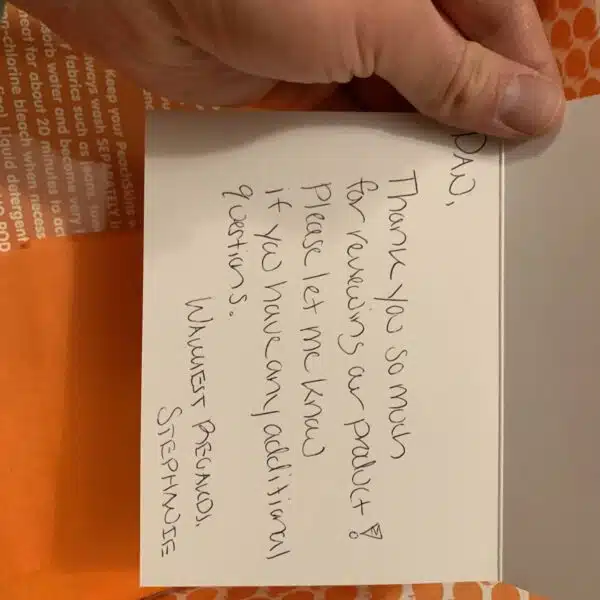 DAN,
Thank you so much
for reviewing our product!
Please let me know
if you have any additional
questions.
WARMEST REGARDS,
STEPHANIE
Keep your PeachSkins
always wash SEPARATELY
fabrics such as jeans,
absorb water and become very
heat for about 20 minutes to
-chlorine bleach when
Liquid detergent